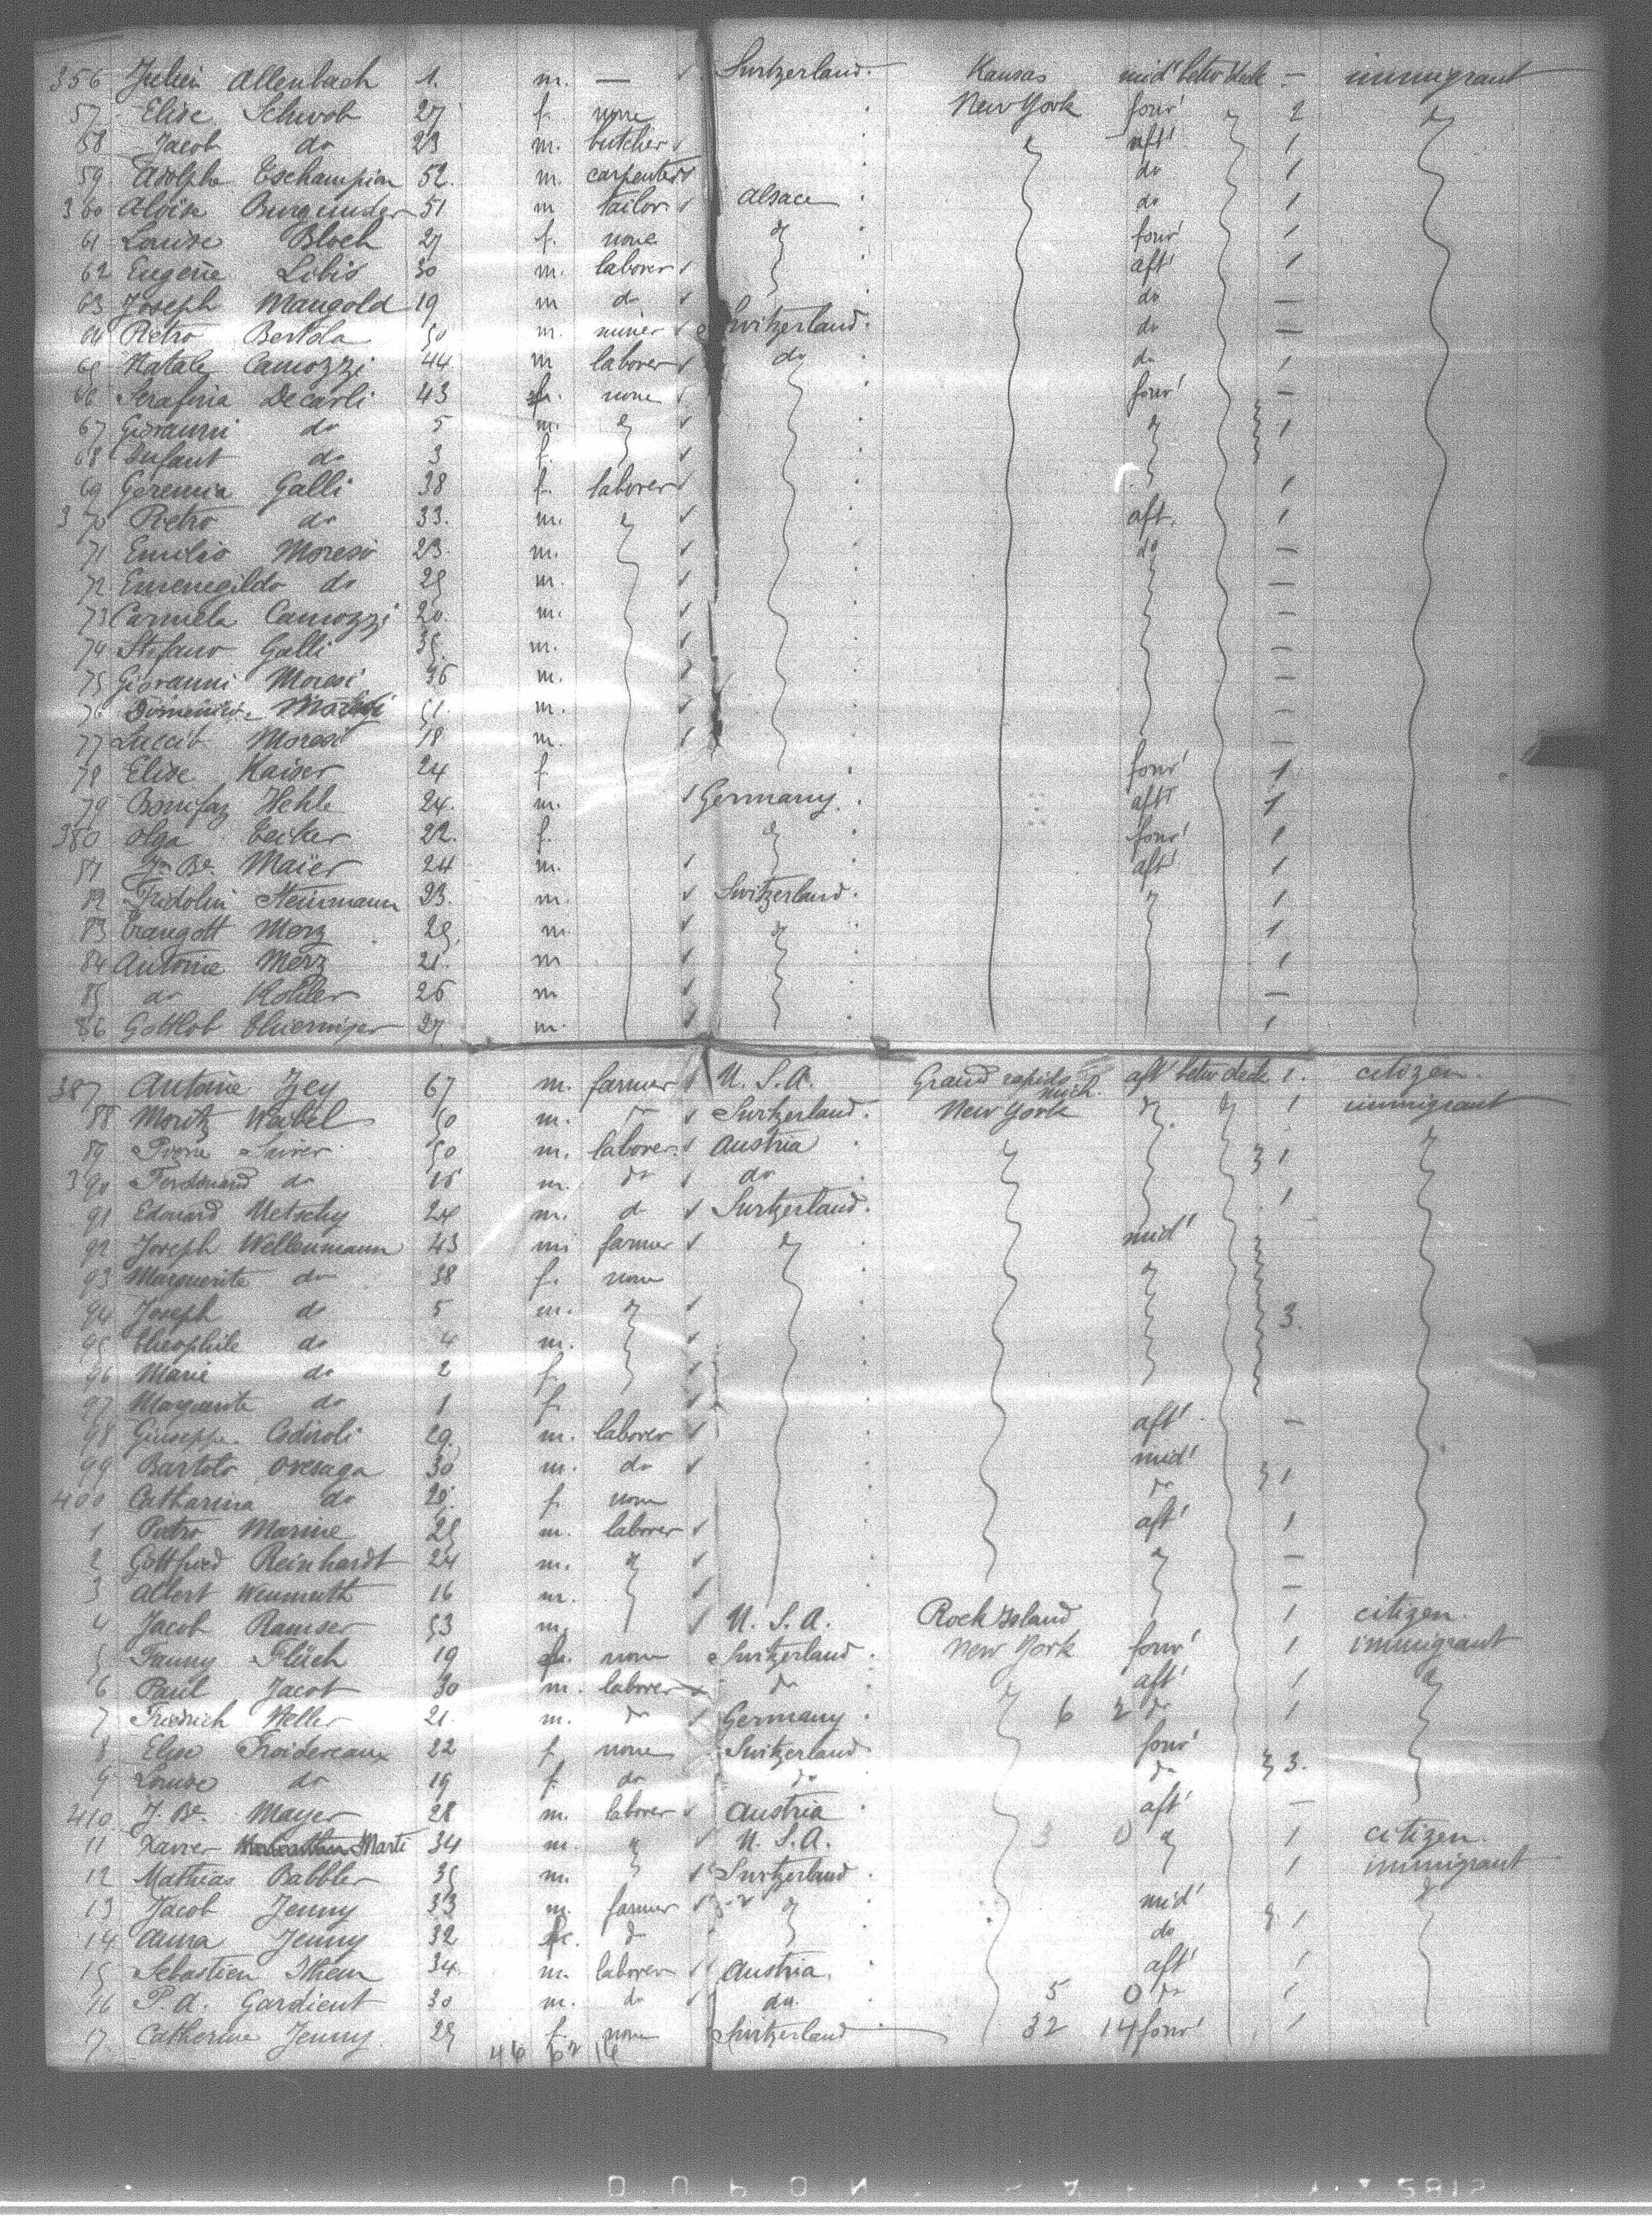 356 Julien Allenbach 1. m. — ✓ Switzerland. Kansas mid' betw deck — immigrant
57 Elise Schwob 27 f. none New York forw' 2
58 Jacob do 23 m. butcher ✓ aft' 1
59 Adolphe 52. m. carpenter ✓ do 1
360 Aloïse Burgunder 51 m tailor ✓ Alsace do 1
61 Louise Bloch 27 f. none forw' 1
62 Eugene Libis 30 m. laborer ✓ aft' 1
63 Joseph Mangold 19 m do ✓ do —
64 Pietro Bertola 50 m. miner ✓ Switzerland. do —
65 Natale Camozzi 44 m laborer ✓ do do 1
66 Serafina Decarli 43 f. none ✓ forw' —
67 Giovanni do 5 m. ✓ 1
68 Infant do 3 f. ✓
69 Geremia Galli 38 f. laborer ✓ 1
370 Pietro do 33. m. ✓ aft. 1
71 Emilio Moresi 23. m. ✓ do —
72 do 25 m. ✓ —
73 Carmela Camozzi 20. m. ✓ —
74 Stefano Galli 35. m. ✓ —
75 Giovanni Moresi 36 m. ✓ —
76 Domenico 51. m. ✓ —
77 Moresi 18 m. ✓ —
78 Elise Kaiser 24 f. forw' 1
79 Bonifaz Hehle 24. m. ✓ Germany. aft' 1
380 Olga Ecker 22. f. forw' 1
81 Jn Be. Maïer 24 m. ✓ aft' 1
82 Fridolin Steinmann 23. m. ✓ Switzerland. 1
83 Traugott Merz 25. m. ✓ 1
84 Antoine Merz 21. m ✓ 1
85 do Kohler 26 m ✓ —
86 Gottlob 27 m. ✓ 1
387 Antoine Zey 67 m. farmer ✓ U. S. A. Grand rapids Mich. aft' betw deck 1. citizen.
88 Moritz Weibel 50 m. do ✓ Switzerland. New York 1 immigrant
89 50 m. laborer. ✓ Austria 1
390 Ferdinand do 15 m. do ✓ do
91 Edouard Metschy 24 m. do ✓ Switzerland. 1
92 Joseph Wellenmann 43 m farmer ✓ mid'
93 Marguerite do 38 f. none
94 Joseph do 5 m. ✓ 3.
95 Theophile do 4 m. ✓
96 Marie do 2 f. ✓
97 Marguerite do 1 f. ✓
98 Giuseppe Codiroli 29. m. laborer ✓ aft' —
99 Bartolo Oresaga 30 m. do ✓ mid' 1
400 Catharina do 20. f. none do
1 Pietro Marine 25 m. laborer ✓ aft' 1
2 Gottfried Reinhardt 24 m. ✓ —
3 Albert Wenmuth 16 m. ✓ —
4 Jacob Ramser 53 m. ✓ U. S. A. Rock Island 1 citizen.
5 Fanny Flüch 19 f. none Switzerland. New York forw' 1 immigrant
6 Paul Jacot 30 m. laborer do aft' 1
7 Friedrich Heller 21. m. do ✓ Germany. 6 2 do 1
8 Elise Froidevaux 22 f. none Switzerland. forw'
9 Louise do 19 f. do do do 3.
410. J. Be. Mayer 28 m. laborer ✓ Austria aft' —
11 Xavier Marti 34 m. ✓ U. S. A. 3 0 1 citizen.
12 Mathias Babbler 35 m. ✓ Switzerland 1 immigrant
13 Jacob Jenny 33 m. farmer ✓ mid'
14 Anna Jenny 32 f. do do 1
15 Sebastien 34. m. laborer ✓ Austria. aft' 1
16 P. A. Gardient 30 m. do ✓ do. 5 0 do 1
17 Catherine Jenny. 25 f. none Switzerland 32 14 forw' 1
46 62 16